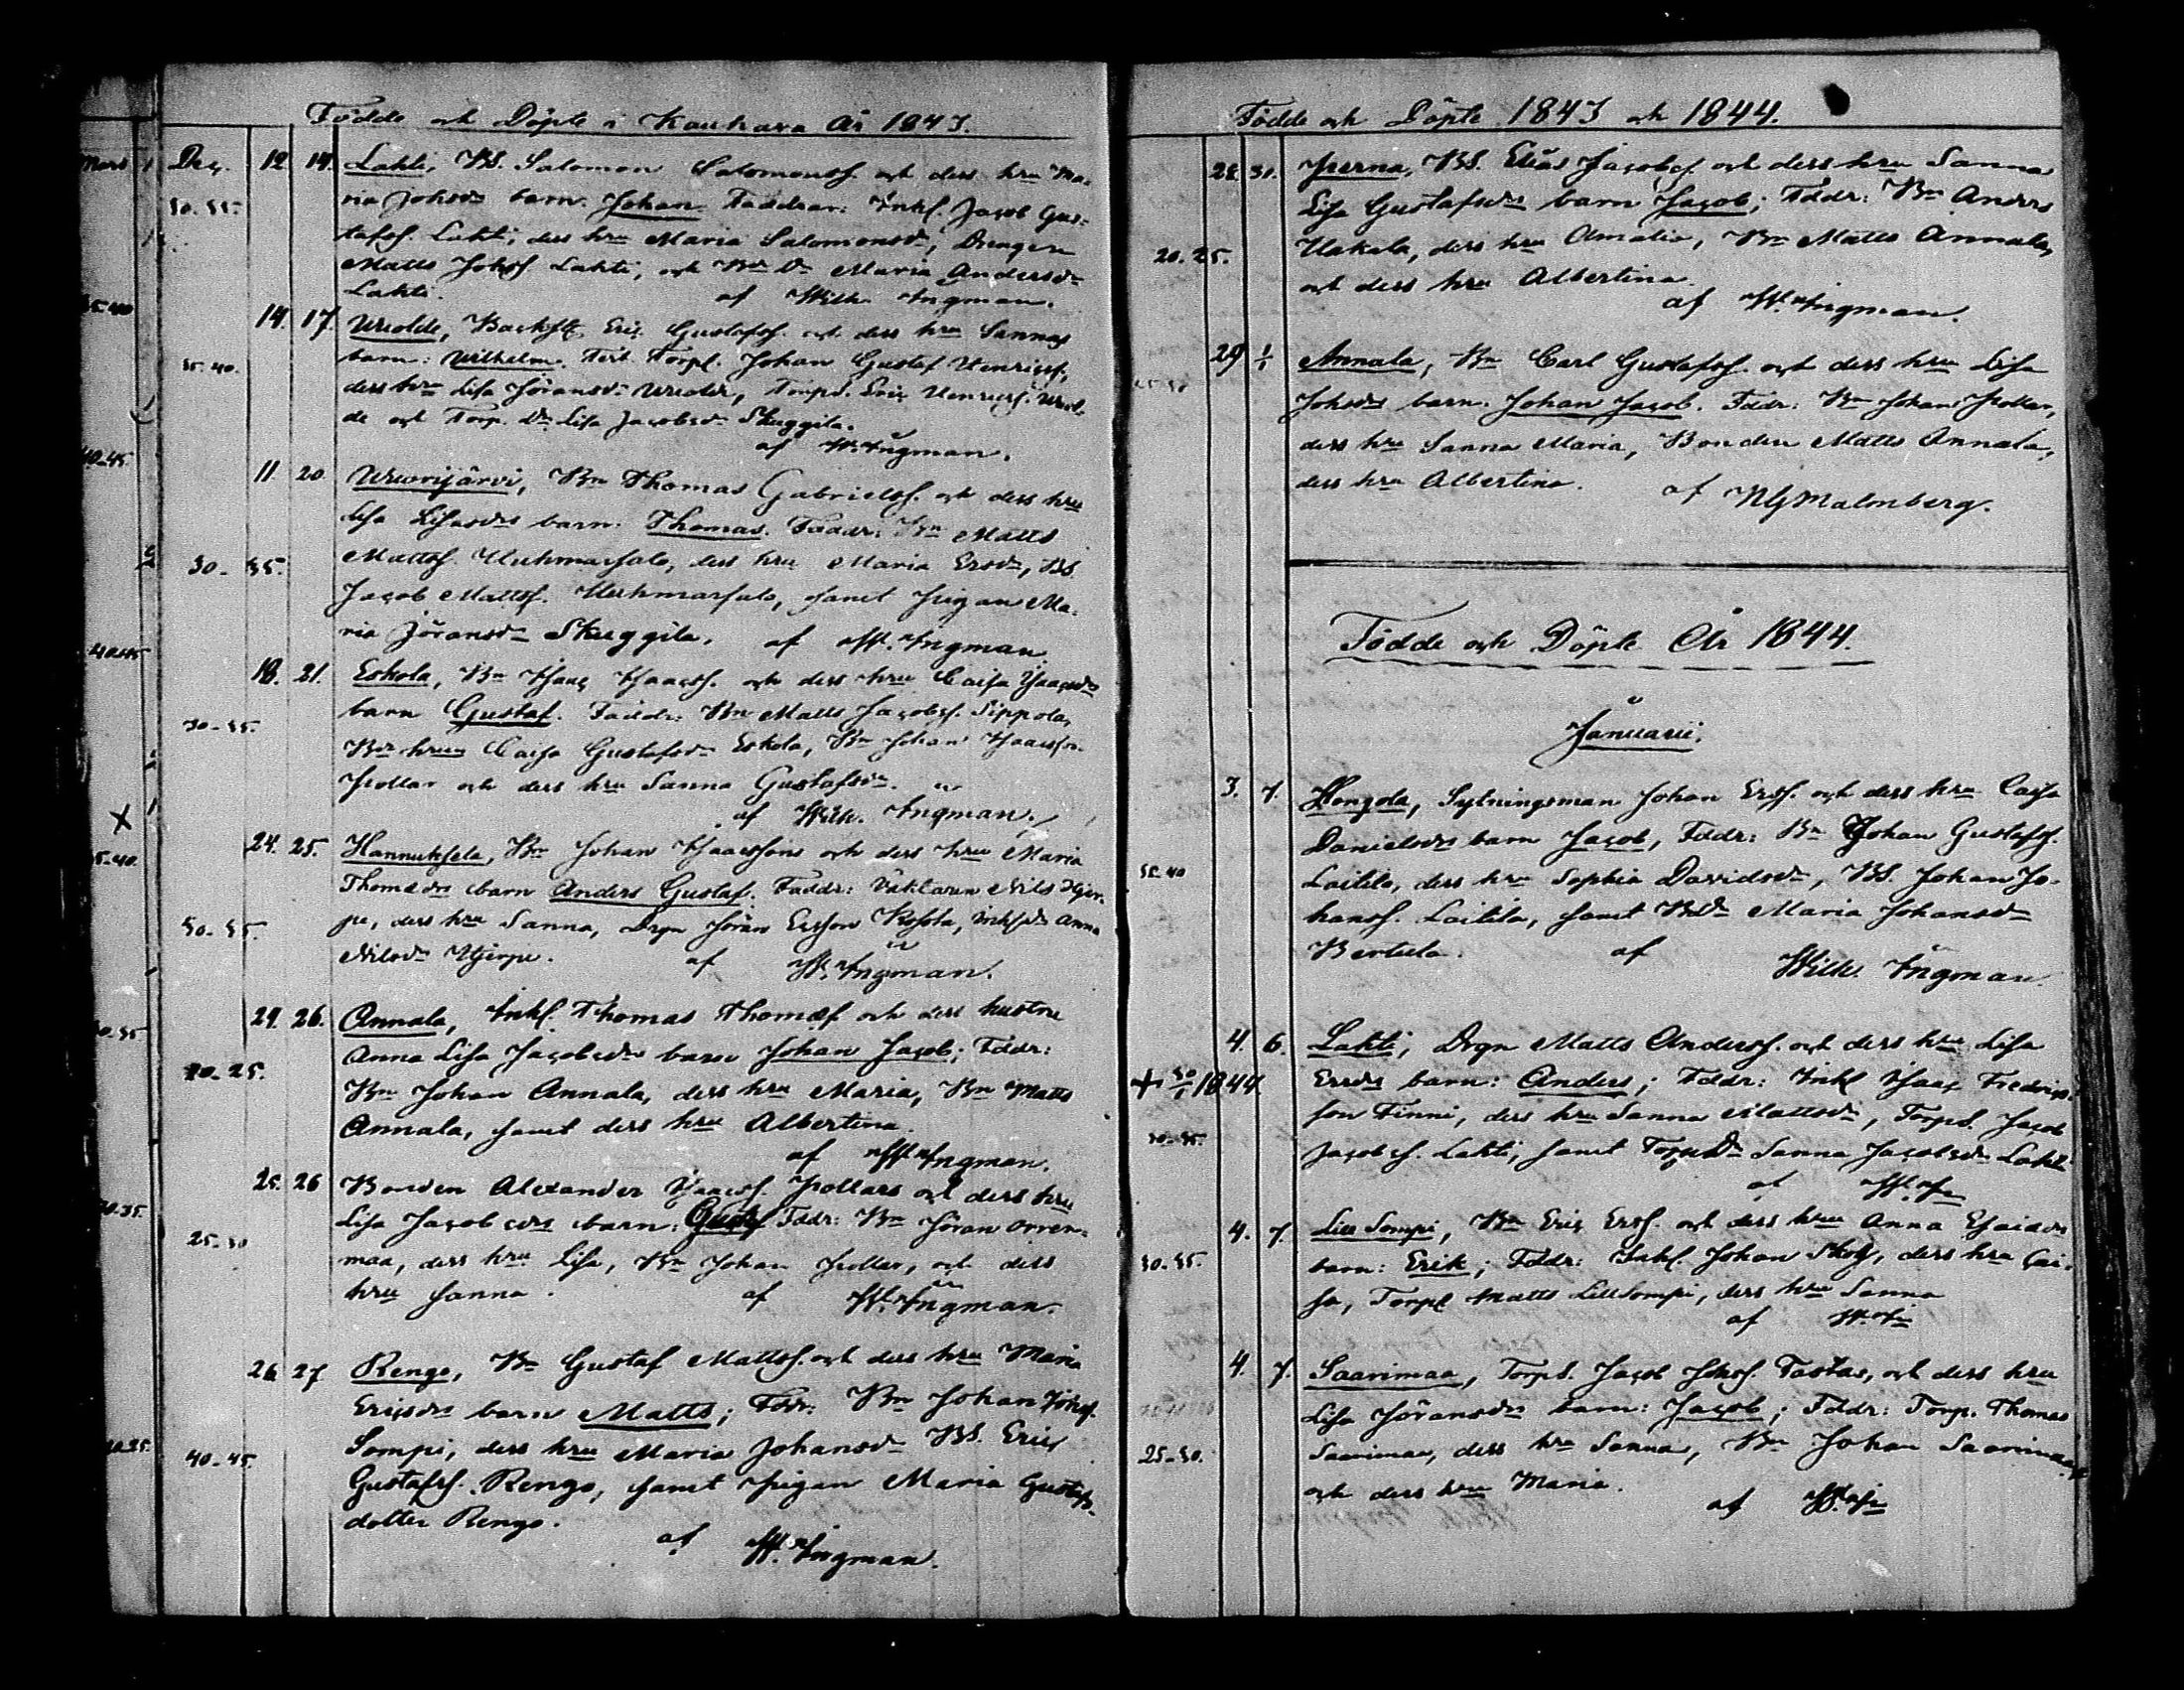 Födde och Döpte i Kauhava År 1843.
Dec. 12. 14. Lahti, BS. Salomon Salomonss. och dess hru Ma-
30-35. ria Johsdrs barn. Johan. Faddrar: Inhs. Jacob Gus-
tafss. Lahti, dess hru Maria Salomonsdr, Drengen
Matts Johss Lahti, och Bdr Maria Andersdr
Lahti. af Wilh. Ingman.
14. 17. Wuolde, Eric Gustafss. och dess hru Sannas
35.40. barn: Wilhelm. Test. Torp. Johan Gustaf Henricss,
dess hru Lisa Jöransdr Wuolde, Torps. Eric Henricss. Wuol-
de och Torp. Dr Lisa Jacobsdr Skuggila.
af W. Ingman.
11. 20. Wuorijärvi, Bn Thomas Gabrielss. och dess hru
Lisa barn: Thomas. Faddr: Bn Matts
30-35. Mattss. Huhmarsalo, dess hru Maria Ersdr, BS.
Jacob Mattss. Huhmarsalo, samt Pigan Ma-
ria Jöransdr Skuggila. af W. Ingman.
18. 21. Eskola, Bn Isaac Isaacss. och dess hru Caisa Isaacsdrs
barn Gustaf. Faddr: Bn Matts Jacobss. Sippola,
30-35. Bde hrun Caisa Gustafsdr Eskola, Bn Johan Isaacsson
Pollar och dess hru Sanna Gustafsdr.
af Wilh. Ingman.
24. 25. Hannuksela, Bn Johan Isaacssons och dess hru Maria
Thomædrs barn Anders Gustaf. Faddr: Väktaren Nils Hjer-
50-55. pe, dess hru Sanna, Drgn Jöran Ersson Kosola, Inhsdr Anna
Nilsdr Hjerpe. af W. Ingman.
24. 26. Annala, Inhs. Thomas Thomæs och dess hustru
Anna Lisa Jacobsdrs barn Johan Jacob; Fddr:
20-25. Bn Johan Annala, dess hru Maria, Bn Matts
Annala, samt dess hru Albertina.
af W. Ingman.
25. 26 Bonden Alexander Isaacss. Pollars och dess hru
Lisa Jacobsdrs barn: Gustf Fddr: Bn Jöran Orren-
25-30 maa, dess hru Lisa, Bn Johan Pollar, och dess
hru Sanna. af W. Ingman.
26 27 Rengo, Bn Gustaf Mattss. och dess hru Maria
Ericsdrs barn Matts; Fddr: Bn Johan Johss.
Sompi, dess hru Maria Johansdr BS. Eric
40-45. Gustafss. Rengo, samt Pigan Maria Gustafs-
dotter Rengo.
af W. Ingman.
Födde och Döpte 1843 och 1844.
28. 31. Perna, BS. Elias Jacobss. och dess hru Sanna
Lisa Gustafsdrs barn Jacob; Fddr: Bn Anders
20.25. Hakala, dess hru Amalia, Bn Matts Annala,
och dess hru Albertina.
af W. Ingman.
29 1/1 Annala, Bn Carl Gustafss. och dess hru Lisa
Johsdrs barn. Johan Jacob. Fddr: Bn Johan Pollar,
dess hru Sanna Maria, Bonden Matts Annala,
dess hru Albertina. af NGMalmberg.
Födde och Döpte År 1844.
Januarii.
3. 7. Hongola, Sytningsman Johan Erss. och dess hru Caisa
Danielsdrs barn Jacob, Fddr: Bn Johan Gustafss.
35-40 Laitila, dess hru Sophia Davidsdr, BS. Johan Jo-
hanss. Laitila, samt BDr Maria Johansdr
Bertula. af Wilh. Ingman.
4. 6. Lahti, Drgn Matts Anderss. och dess hru Lisa
+ 30/1 1844. Ersdrs barn: Anders; Fddr: Inhs Isaac Fredrics-
son Finni, dess hru Sanna Mattsdr, Torps. Jacob
30-35. Jacobss. Lahti, samt TorpDr Sanna Jacobsdr Lahti
af W. In
4. 7. Lill Sompi, Bn Eric Erss. och dess hru Anna Esaiædrs
30-35. barn: Erik; Fddr: Inhs. Johan Skog, dess hru Cai-
sa, Torp Matts LillSompi, dess hru Sanna
af W. In
4. 7. Saarimaa, Torps. Jacob Johss. Tastas, och dess hru
Lisa Jöransdrs barn: Jacob; Fddr: Torp. Thomas
25-30. Saarimaa, dess hru Sanna, Bn Johan Saarimaa
och dess hru Maria. af W. In